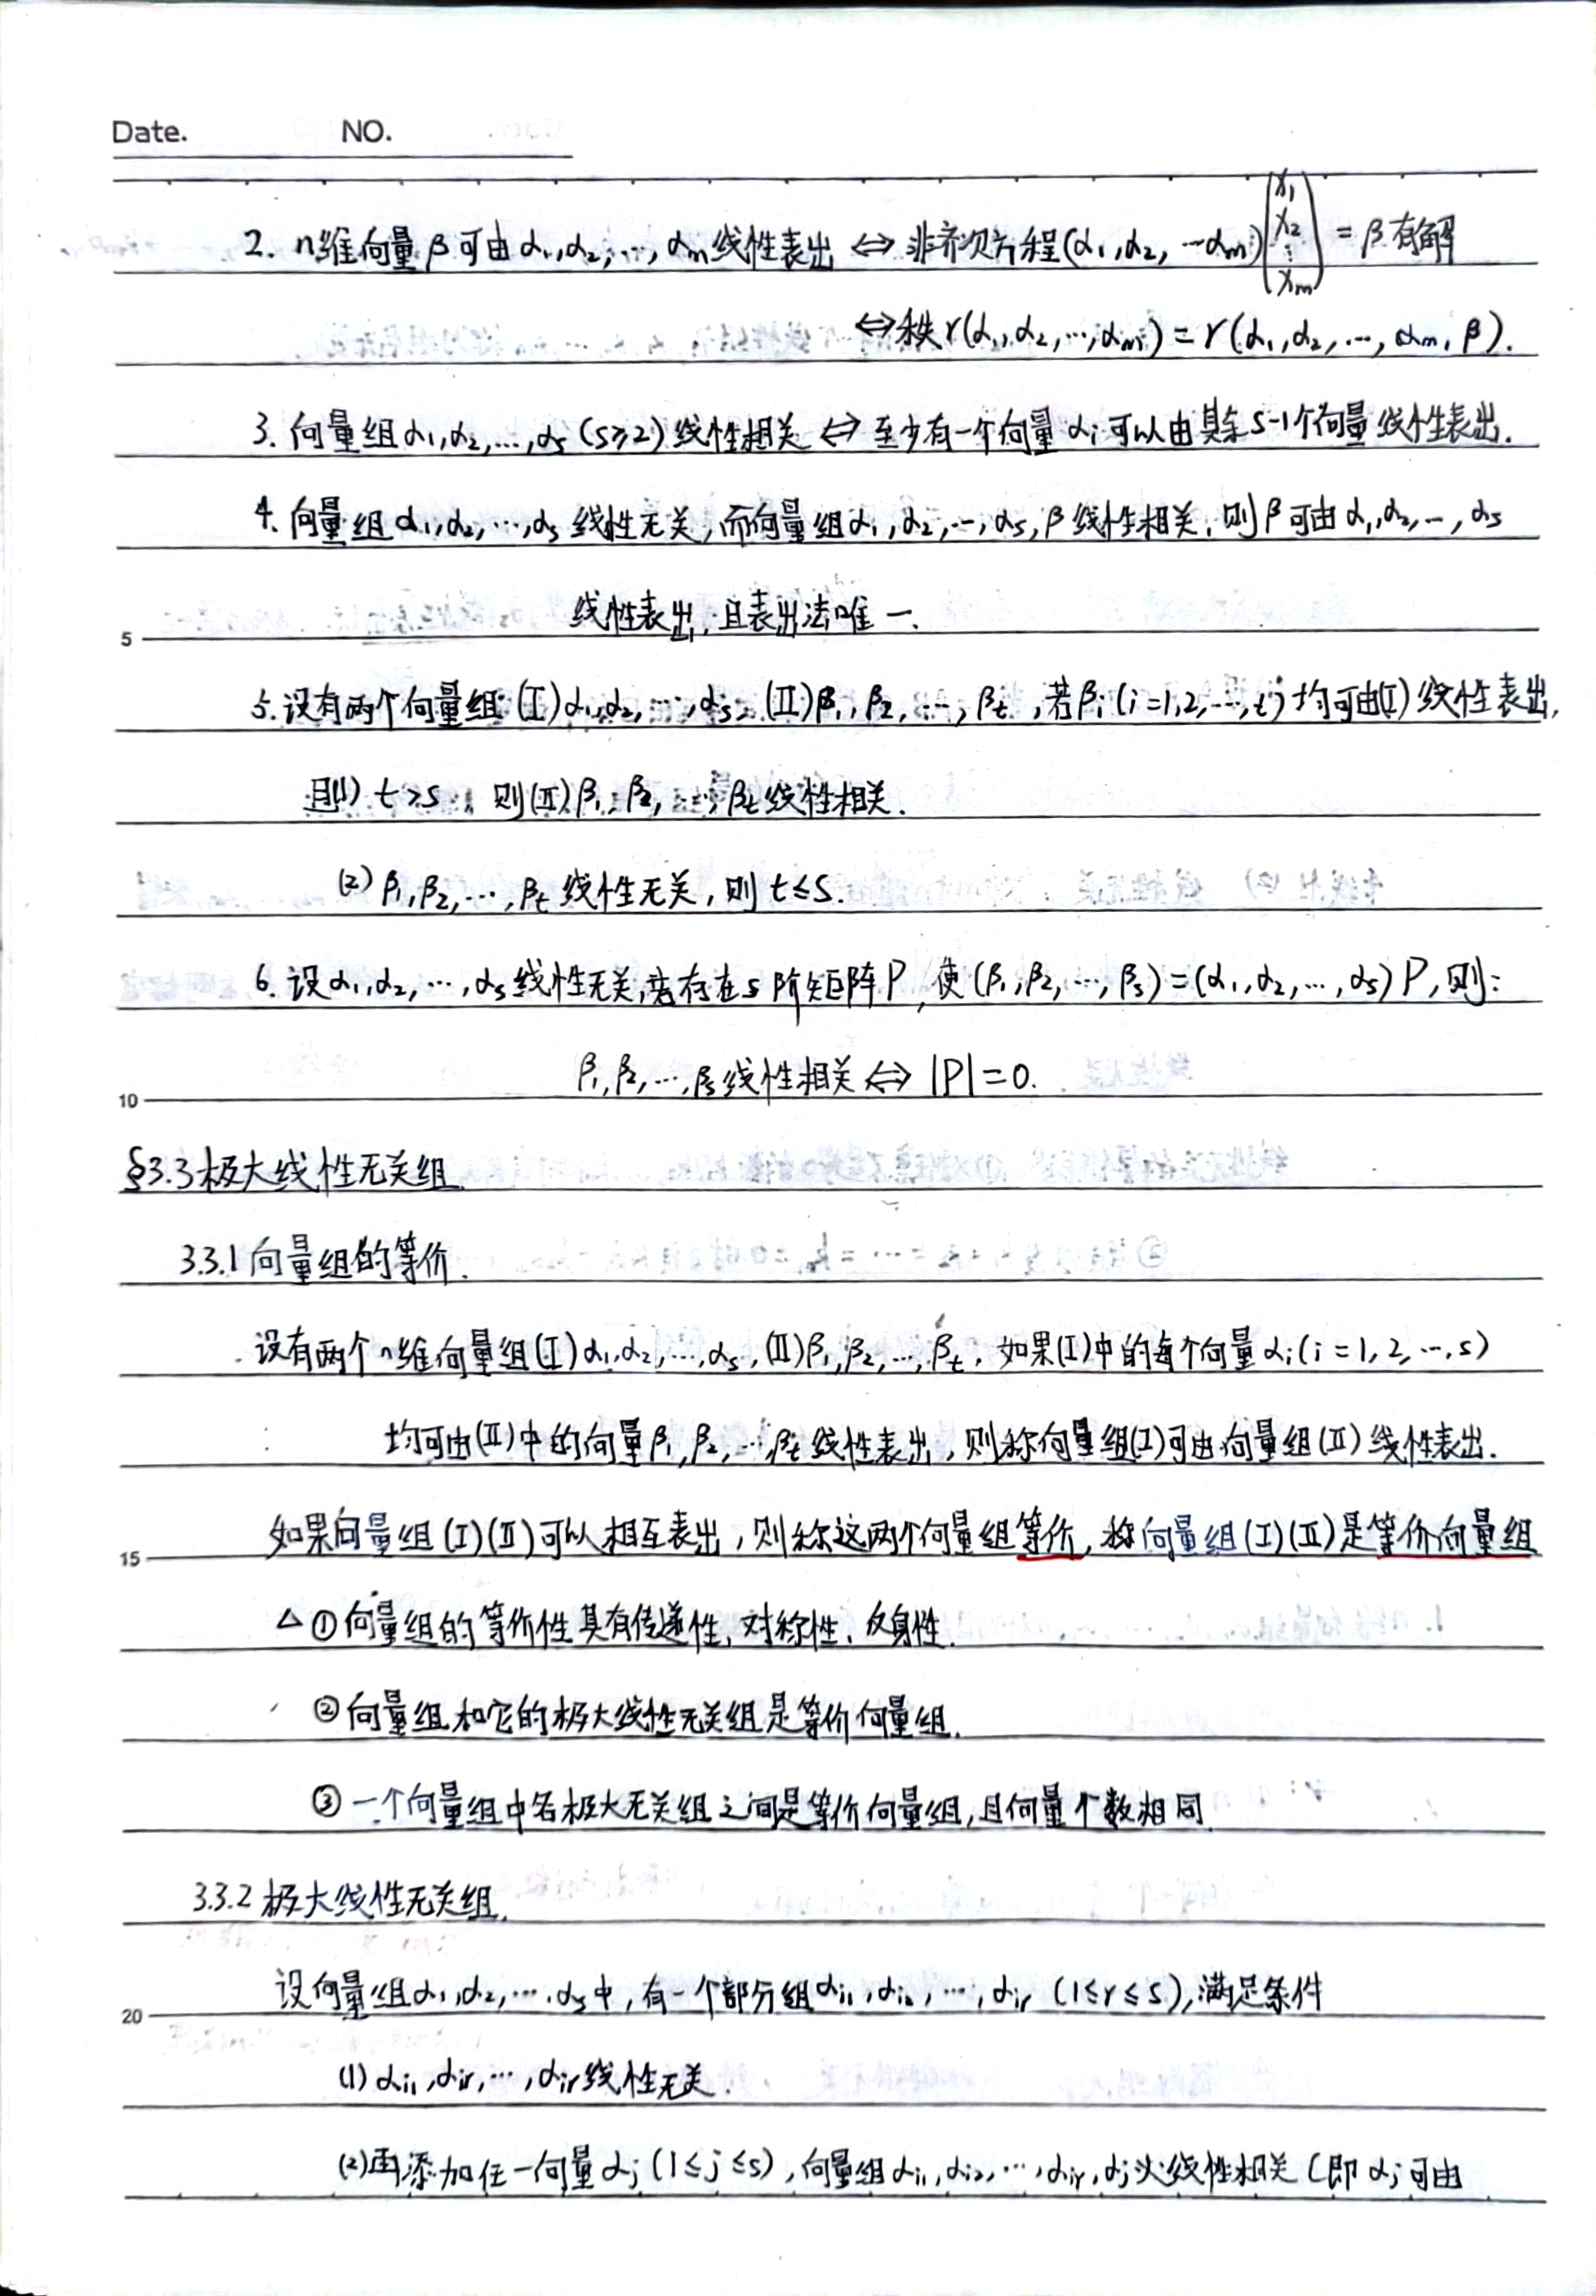 Date. NO.
2. n维向量β可由α₁,α₂,…,αm线性表出 ⇔ 非齐次方程(α₁,α₂,…αm)(x₁ x₂ ⋮ xm) = β有解
⇔秩r(α₁,α₂,…,αm) = r(α₁,α₂,…,αm,β).
3. 向量组α₁,α₂,…,αs(s≥2)线性相关 ⇔ 至少有一个向量αi可以由其余s-1个向量线性表出.
4. 向量组α₁,α₂,…,αs线性无关,而向量组α₁,α₂,…,αs,β线性相关,则β可由α₁,α₂,…,αs
5 线性表出,且表出法唯一.
5. 设有两个向量组(Ⅰ)α₁,α₂,…,αs,(Ⅱ)β₁,β₂,…,βt,若βi(i=1,2,…,t)均可由(Ⅰ)线性表出,
且(1) t>s,则(Ⅱ)β₁,β₂,…,βt线性相关.
(2) β₁,β₂,…,βt线性无关,则t≤s.
6. 设α₁,α₂,…,αs线性无关,若存在s阶矩阵P,使(β₁,β₂,…,βs)=(α₁,α₂,…,αs)P,则:
10 β₁,β₂,…,βs线性相关⇔|P|=0.
§3.3极大线性无关组.
3.3.1向量组的等价.
设有两个n维向量组(Ⅰ)α₁,α₂,…,αs,(Ⅱ)β₁,β₂,…,βt,如果(Ⅰ)中的每个向量αi(i=1,2,…,s)
均可由(Ⅱ)中的向量β₁,β₂,…,βt线性表出,则称向量组(Ⅰ)可由向量组(Ⅱ)线性表出.
15 如果向量组(Ⅰ)(Ⅱ)可以相互表出,则称这两个向量组等价,称向量组(Ⅰ)(Ⅱ)是等价向量组
△①向量组的等价性具有传递性,对称性,反身性.
②向量组和它的极大线性无关组是等价向量组.
③一个向量组中各极大无关组之间是等价向量组,且向量个数相同.
3.3.2极大线性无关组.
20 设向量组α₁,α₂,…,αs中,有一个部分组αi₁,αi₂,…,αir (1≤r≤s),满足条件
(1) αi₁,αir,…,αir线性无关.
(2)再添加任一向量αj(1≤j≤s),向量组αi₁,αi₂,…,αir,αj必线性相关(即αj可由